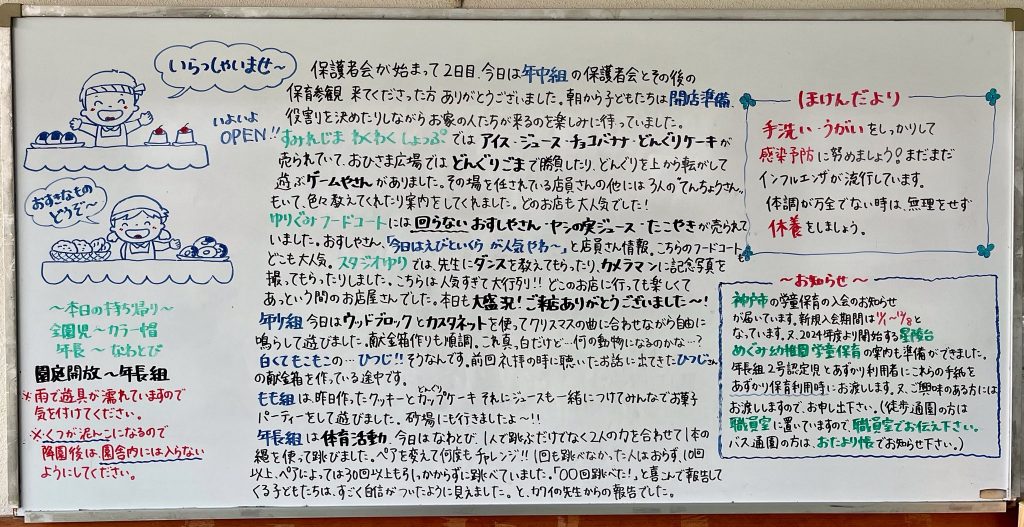 いらっしゃいませ～
いよいよ
OPEN!!
おすきなもの
どうぞ～
～本日の持ち帰り～
全園児～カラー帽
年長～なわとび
園庭開放～年長組
※雨で遊具が濡れていますので
気を付けてください。
※くつが泥んこになるので
降園後は、園舎内には入らない
ようにしてください。
保護者会が始まって2日目、今日は年中組の保護者会とその後の
保育参観 来てくださった方 ありがとうございました。朝から子どもたちは開店準備、
役割を決めたりしながらお家の人たちが来るのを楽しみに待っていました。
すみれじま わくわく しょっぷでは アイス・ジュース・チョコバナナ・どんぐりケーキが
売られていて、おひさま広場では どんぐりごまで勝負したり、どんぐりを上から転がして
遊ぶゲームやさんがありました。その場を任されている店員さんの他には3人の“てんちょうさん”
もいて、色々教えてくれたり案内をしてくれました。どのお店も大人気でした！
ゆりぐみフードコートには 回らないおすしやさん・ヤシの実ジュース・たこやきが売られて
いました。おすしやさん、「今日はえびといくらが人気やわ～」と店員さん情報。こちらのフードコートも
どこも大人気。スタジオゆりでは、先生にダンスを教えてもらったり、カメラマンに記念写真を
撮ってもらったりしました。こちらは人気すぎて大行列!! どこのお店に行っても楽しくて
あっという間のお店屋さんでした。本日も大盛況！ご来店ありがとうございました～！
年少組 今日はウッドブロックとカスタネットを使ってクリスマスの曲に合わせながら自由に
鳴らして遊びました。献金箱作りも順調。これ真っ白だけど…何の動物になるのかな…？
白くてもこもこの…ひつじ!! そうなんです。前回礼拝の時に聴いたお話に出てきたひつじさん
の献金箱を作っている途中です。
もも組は、昨日作ったクッキーとどんぐりカップケーキ それにジュースも一緒につけてみんなでお菓子
パーティーをして遊びました。砂場にも行きましたよ～!!
年長組は体育活動。今日はなわとび。1人で跳ぶだけでなく2人の力を合わせて1本の
縄を使って跳びました。ペアを変えて何度もチャレンジ!! 1回も跳べなかった人はおらず、10回
以上、ペアによっては30回以上もひっかからずに跳べていました。「〇〇回跳べた！」と喜こんで報告して
くる子どもたちは、すごく自信がついたように見えました。と、カワイの先生からの報告でした。
ほけんだより
手洗い・うがいをしっかりして
感染予防に努めましょう。まだまだ
インフルエンザが流行しています。
体調が万全でない時は、無理をせず
休養をしましょう。
～お知らせ～
神戸市の学童保育の入会のお知らせ
が届いています。新規入会期間は
なっています。又、2024年度より開始する星陵台
めぐみ幼稚園学童保育の案内も準備ができました。
年長組2号認定児とあずかり利用者にこれらの手紙を
あずかり保育利用時にお渡しします。又、ご興味のある方には
お渡ししますので、お申し出下さい。（徒歩通園の方は
職員室に置いていますので、職員室でお伝え下さい。
バス通園の方は、おたより帳でお知らせ下さい。）